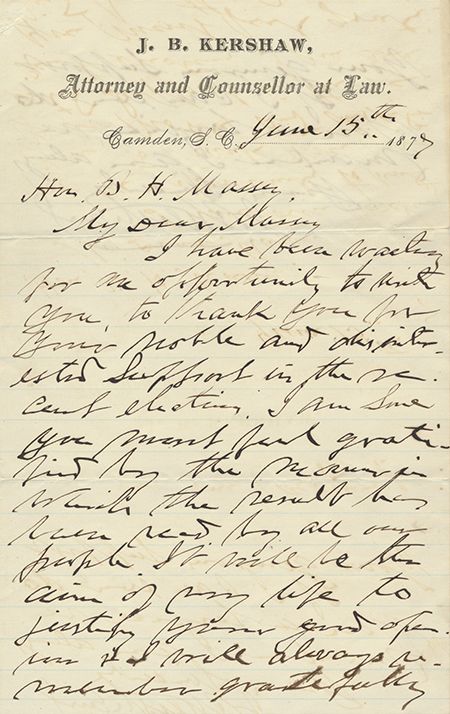 J. B. KERSHAW,
Attorney and Counsellor at Law.
Camden, S. C. June 15th 1877
Hon. B. H. Massey,
My Dear Massey
I have been waiting
for an opportunity to write
you, to thank you for
your noble and disinter-
ested support in the re-
cent election. I am sure
you must feel grati-
fied by the manner in
which the result has
been read by all our
people. It will be the
aim of my life to
justify your good opin-
ion & I will always re-
member gratefully